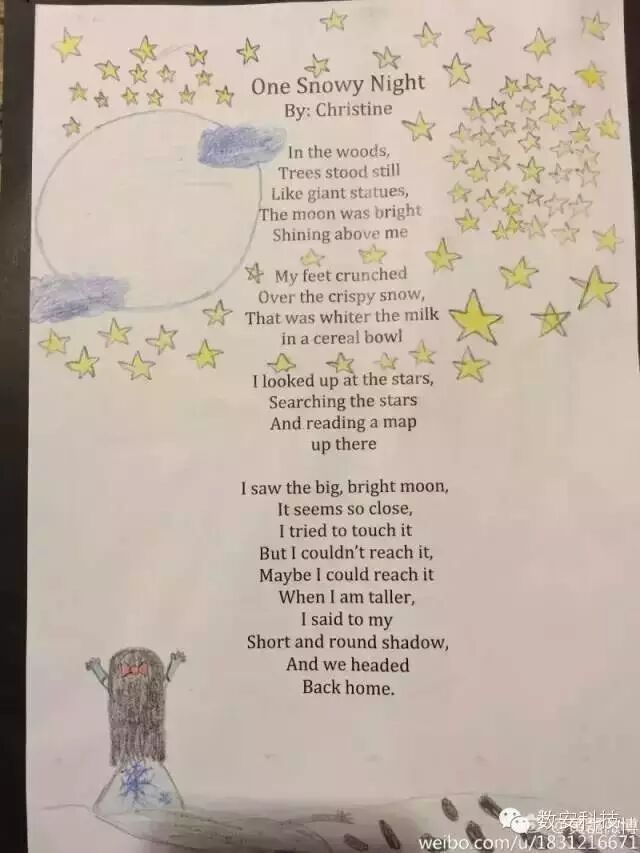 One Snowy Night
By: Christine
In the woods,
Trees stood still
Like giant statues,
The moon was bright
Shining above me
My feet crunched
Over the crispy snow,
That was whiter the milk
in a cereal bowl
I looked up at the stars,
Searching the stars
And reading a map
up there
I saw the big, bright moon,
It seems so close,
I tried to touch it
But I couldn't reach it,
Maybe I could reach it
When I am taller,
I said to my
Short and round shadow,
And we headed
Back home.
数安科技
weibo.com/u/1831216671